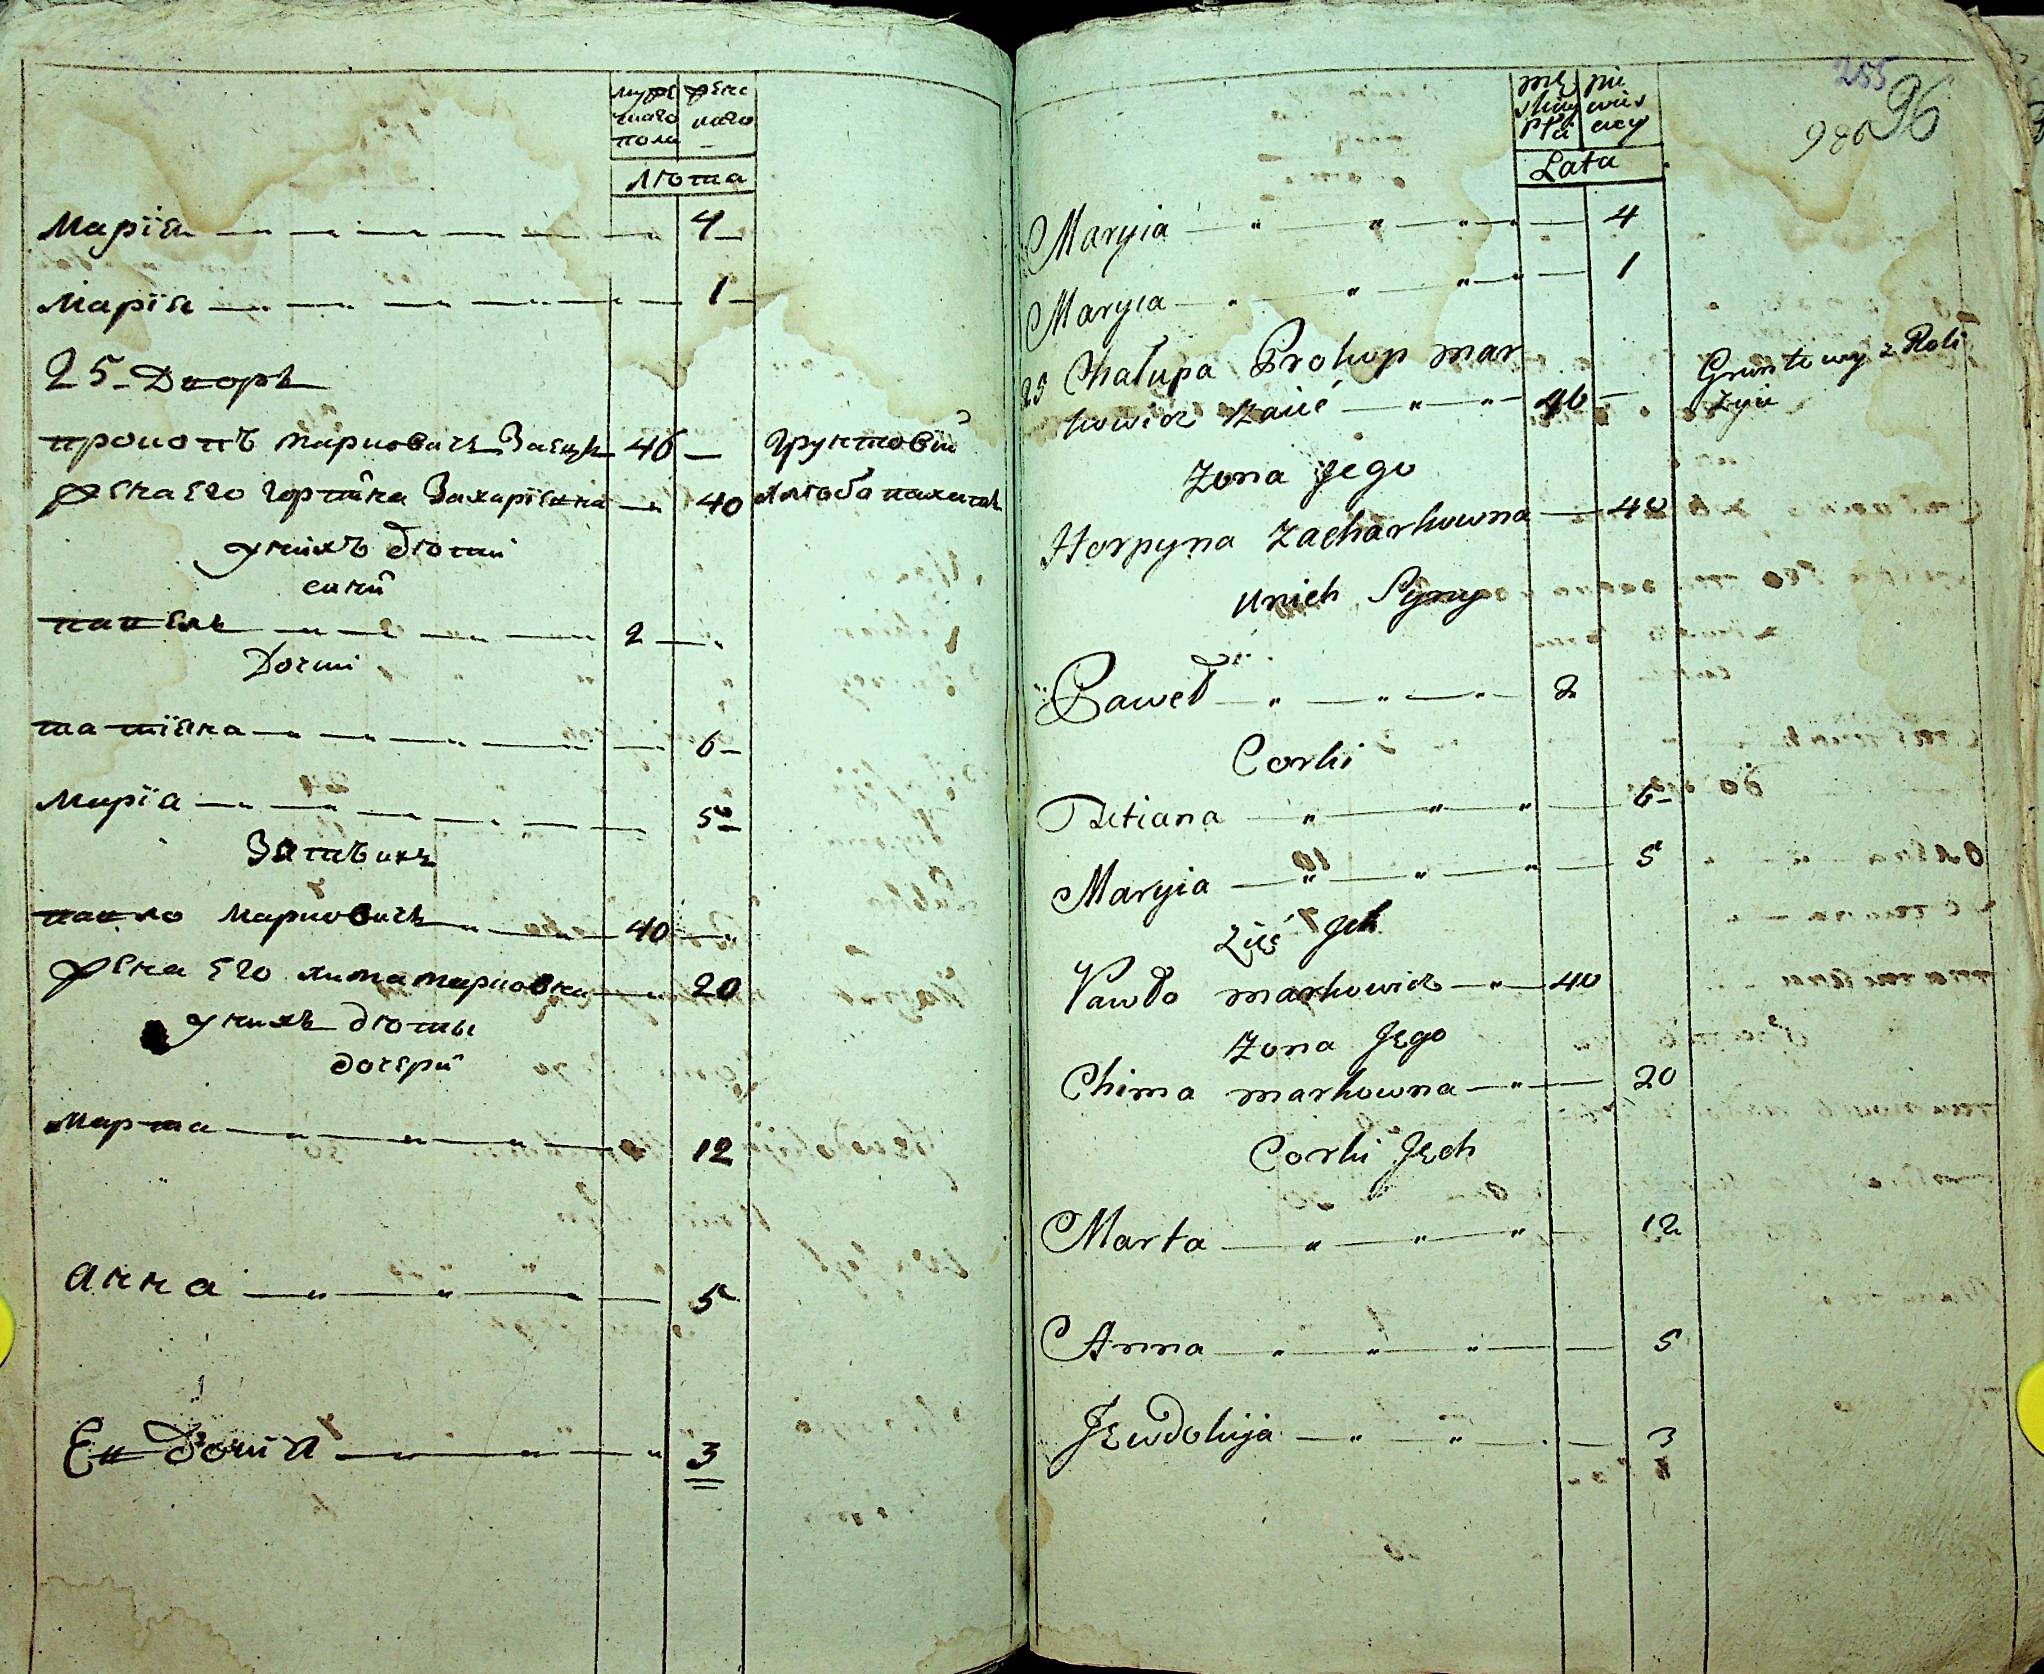 муже женс
скаго каго
пола –
люта
Марїя 4
Марїя 1
25 Дворъ
прокопъ марковичъ Заецъ 46 грунтовїй
жена Его Горпина Захарїевна 40 хлюбопахатъ
унихъ дюти
сини
павелъ 2
Дочки
татїяна 6
Марїа 5
Зять ихъ
павло Марковичъ 40
жена Его хима марковна 20
унихъ дюты
дочери
Марта 12
Анна 5
Евдокиа 3
255
96
986
mę nie
skiey wies
Płci ciey
Lata
Maryia 4
Maryia 1
25 Chałupa Prokop mar
kowicz Zaiić 46 Gruntowy z Roli
żyie
Żona Jego
Horpyna Zacharkowna 40
Unich Syny
Paweł 2
Corki
Tetiana 6
Maryia 5
Zięć Jch
Pawło markowicz 40
Żona Jego
Chima markowna 20
Corki Jech
Marta 12
Anna 5
Jewdokija 3